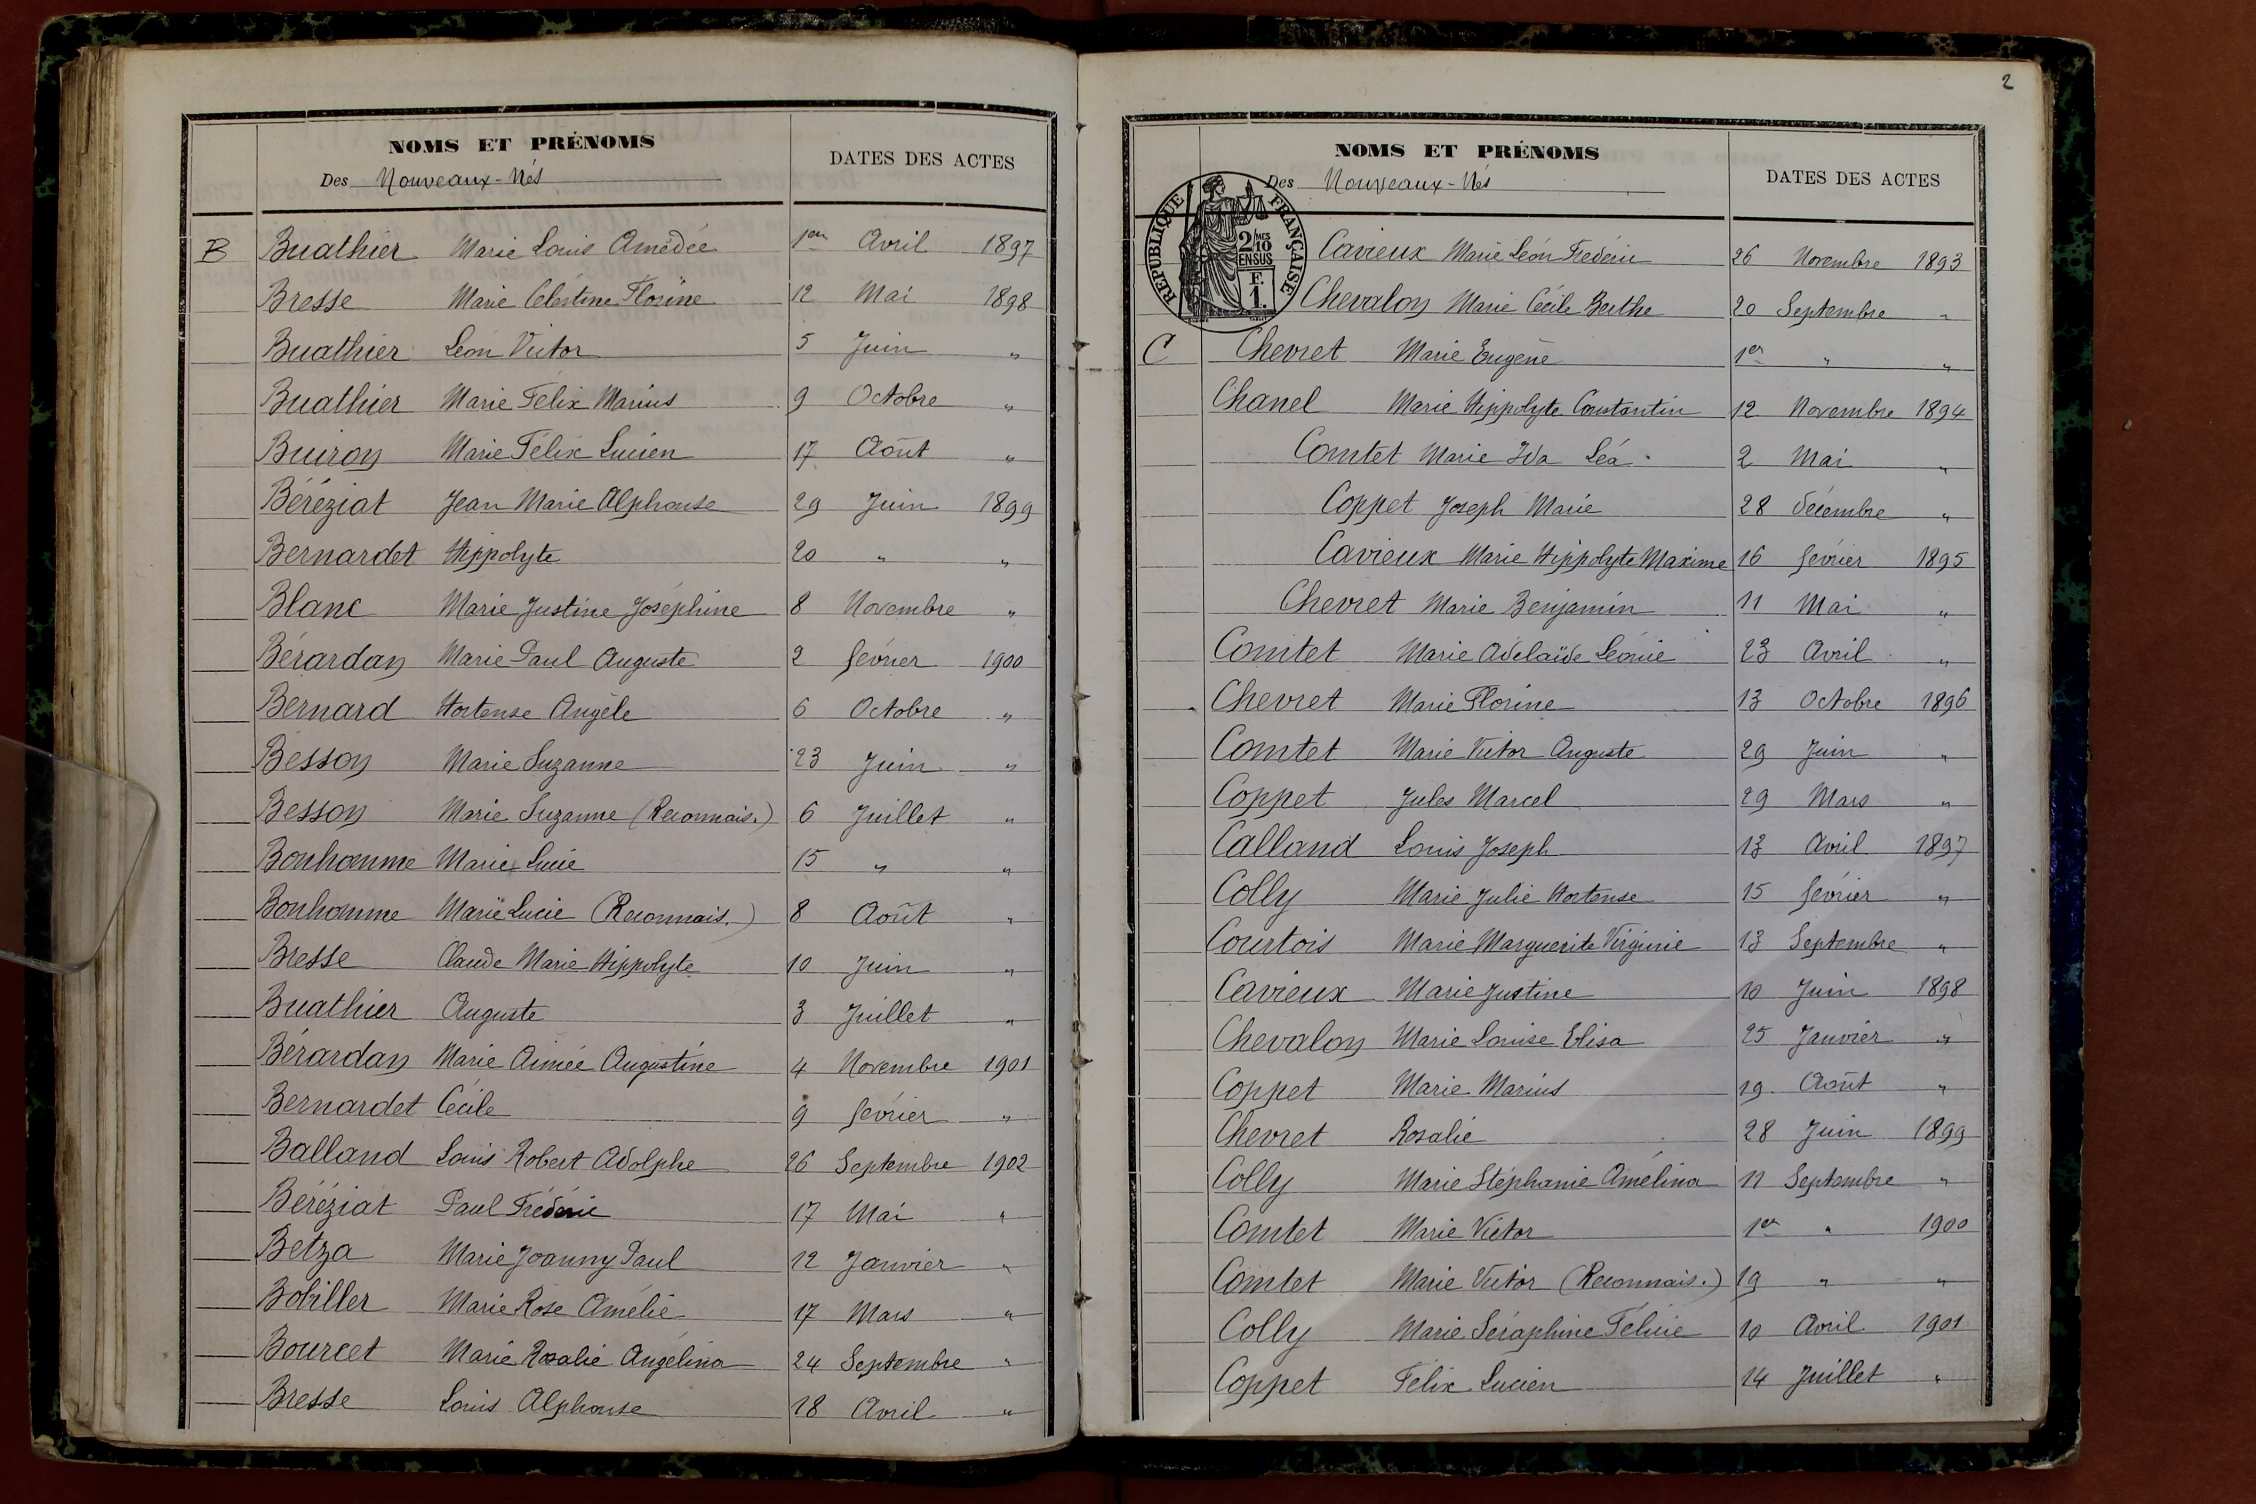 NOMS ET PRÉNOMS
DATES DES ACTES
Des Nouveaux-Nés
B Buathier Marie Louis Amédée 1er Avril 1897
Bresse Marie Célestine Florine 12 Mai 1898
Buathier Léon Victor 5 Juin "
Buathier Marie Félix Marius 9 Octobre "
Buiron Marie Félix Lucien 17 Août "
Béréziat Jean Marie Alphonse 29 Juin 1899
Bernardet Hippolyte 20 " "
Blanc Marie Justine Joséphine 8 Novembre "
Bérardan Marie Paul Auguste 2 février 1900
Bernard Hortense Angèle 6 Octobre "
Besson Marie Suzanne 23 Juin "
Besson Marie Suzanne (Reconnais.) 6 Juillet "
Bonhomme Marie Lucie 15 " "
Bonhomme Marie Lucie (Reconnais.) 8 Août "
Bresse Claude Marie Hippolyte 10 Juin "
Buathier Auguste 3 Juillet "
Bérardan Marie Aimée Augustine 4 Novembre 1901
Bernardet Cécile 9 février "
Balland Louis Robert Adolphe 26 Septembre 1902
Béréziat Paul Frédéric 17 Mai "
Betza Marie Joanny Paul 12 Janvier "
Bobiller Marie Rose Amélie 17 Mars "
Bourcet Marie Rosalie Angélina 24 Septembre "
Bresse Louis Alphonse 18 Avril "
2
NOMS ET PRÉNOMS
DATES DES ACTES
Des Nouveaux-Nés
RÉPUBLIQUE FRANÇAISE
2/10 MES
EN SUS
F.
1.
Cavieux Marie Léon Frédéric 26 Novembre 1893
Chevalon Marie Cécile Berthe 20 Septembre "
C Chevret Marie Eugène 1er " "
Chanel Marie Hippolyte Constantin 12 Novembre 1894
Comtet Marie Ida Léa 2 Mai "
Coppet Joseph Marie 28 décembre "
Cavieux Marie Hippolyte Maxime 16 février 1895
Chevret Marie Benjamin 11 Mai "
Comtet Marie Adélaïde Léonie 23 Avril "
Chevret Marie Florine 13 Octobre 1896
Comtet Marie Victor Auguste 29 Juin "
Coppet Jules Marcel 29 Mars "
Calland Louis Joseph 13 Avril 1897
Colly Marie Julie Hortense 15 février "
Courtois Marie Marguerite Virginie 13 Septembre "
Cavieux Marie Justine 10 Juin 1898
Chevalon Marie Louise Elisa 25 Janvier "
Coppet Marie Marius 19 Août "
Chevret Rosalie 28 Juin 1899
Colly Marie Stéphanie Amélina 11 Septembre "
Comtet Marie Victor 1er " 1900
Comtet Marie Victor (Reconnais.) 19 " "
Colly Marie Séraphine Félicie 10 Avril 1901
Coppet Félix Lucien 14 Juillet "